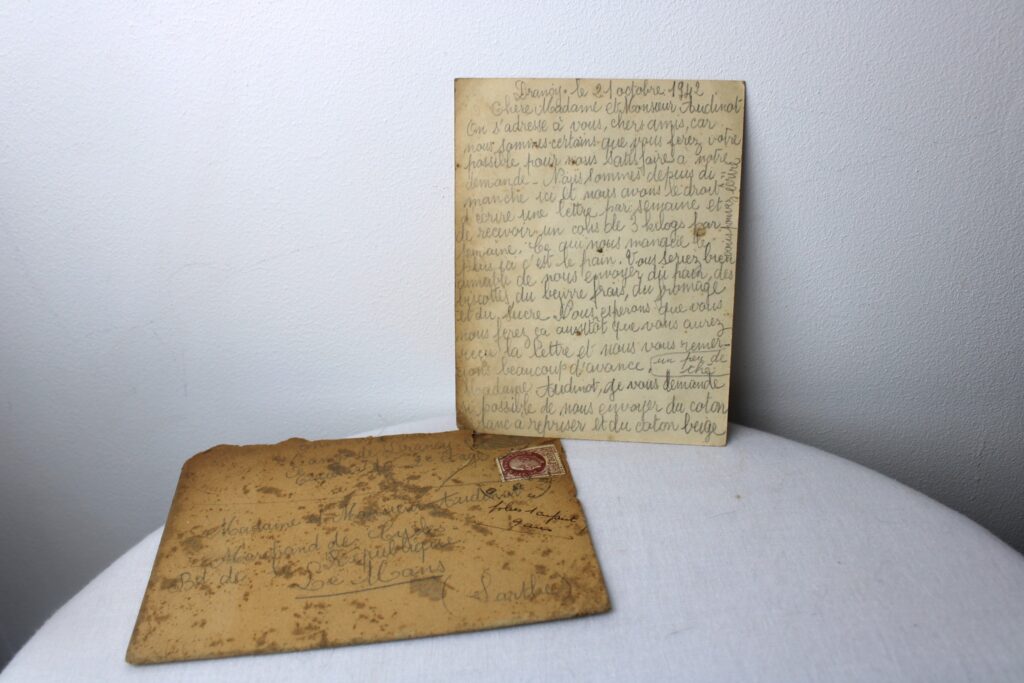 Drancy. le 21 octobre 1942
Chère Madame et Monsieur Audinot
On s'adresse à vous, chers amis, car
nous sommes certains que vous ferez votre
possible pour nous satisfaire à notre
demande - Nous sommes depuis di-
manche ici et nous avons le droit
d'écrire une lettre par semaine et
de recevoir un colis de 3 kilogs par
semaine. Ce qui nous manque le
plus ça c'est le pain. Vous seriez bien
aimable de nous envoyer du pain, des
biscottes, du beurre frais, du fromage
et du sucre. Nous esperons que vous
nous ferez ça aussitôt que vous aurez
reçu la lettre et nous vous remer-
cions beaucoup d'avance. un peu de
thé
Madame Audinot, je vous demande
si possible de nous envoyer du coton
blanc à repriser et du coton beige
Madame Monsieur Audinot
Marchand de
Bd de République
Le Mans
(Sarthe)